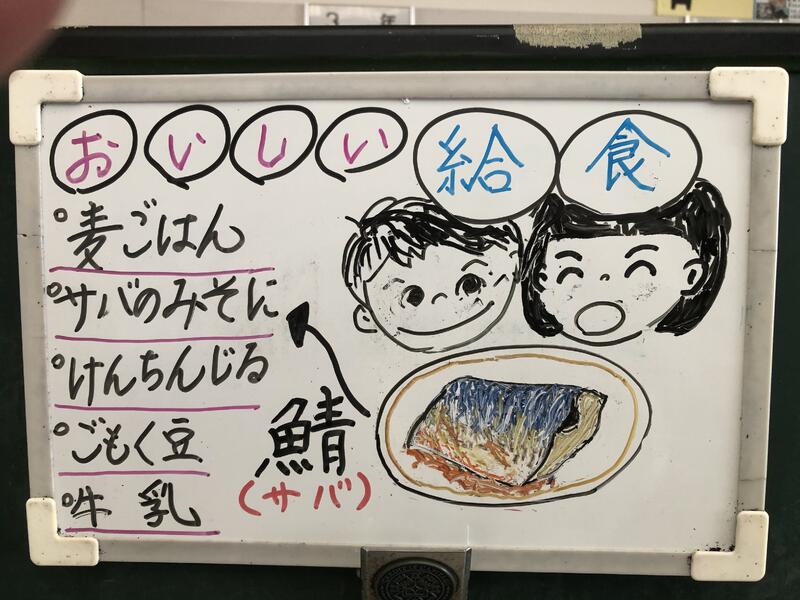 3 年
おいしい給食
麦ごはん
サバのみそに
けんちんじる
ごもく豆
牛乳
鯖
(サバ)